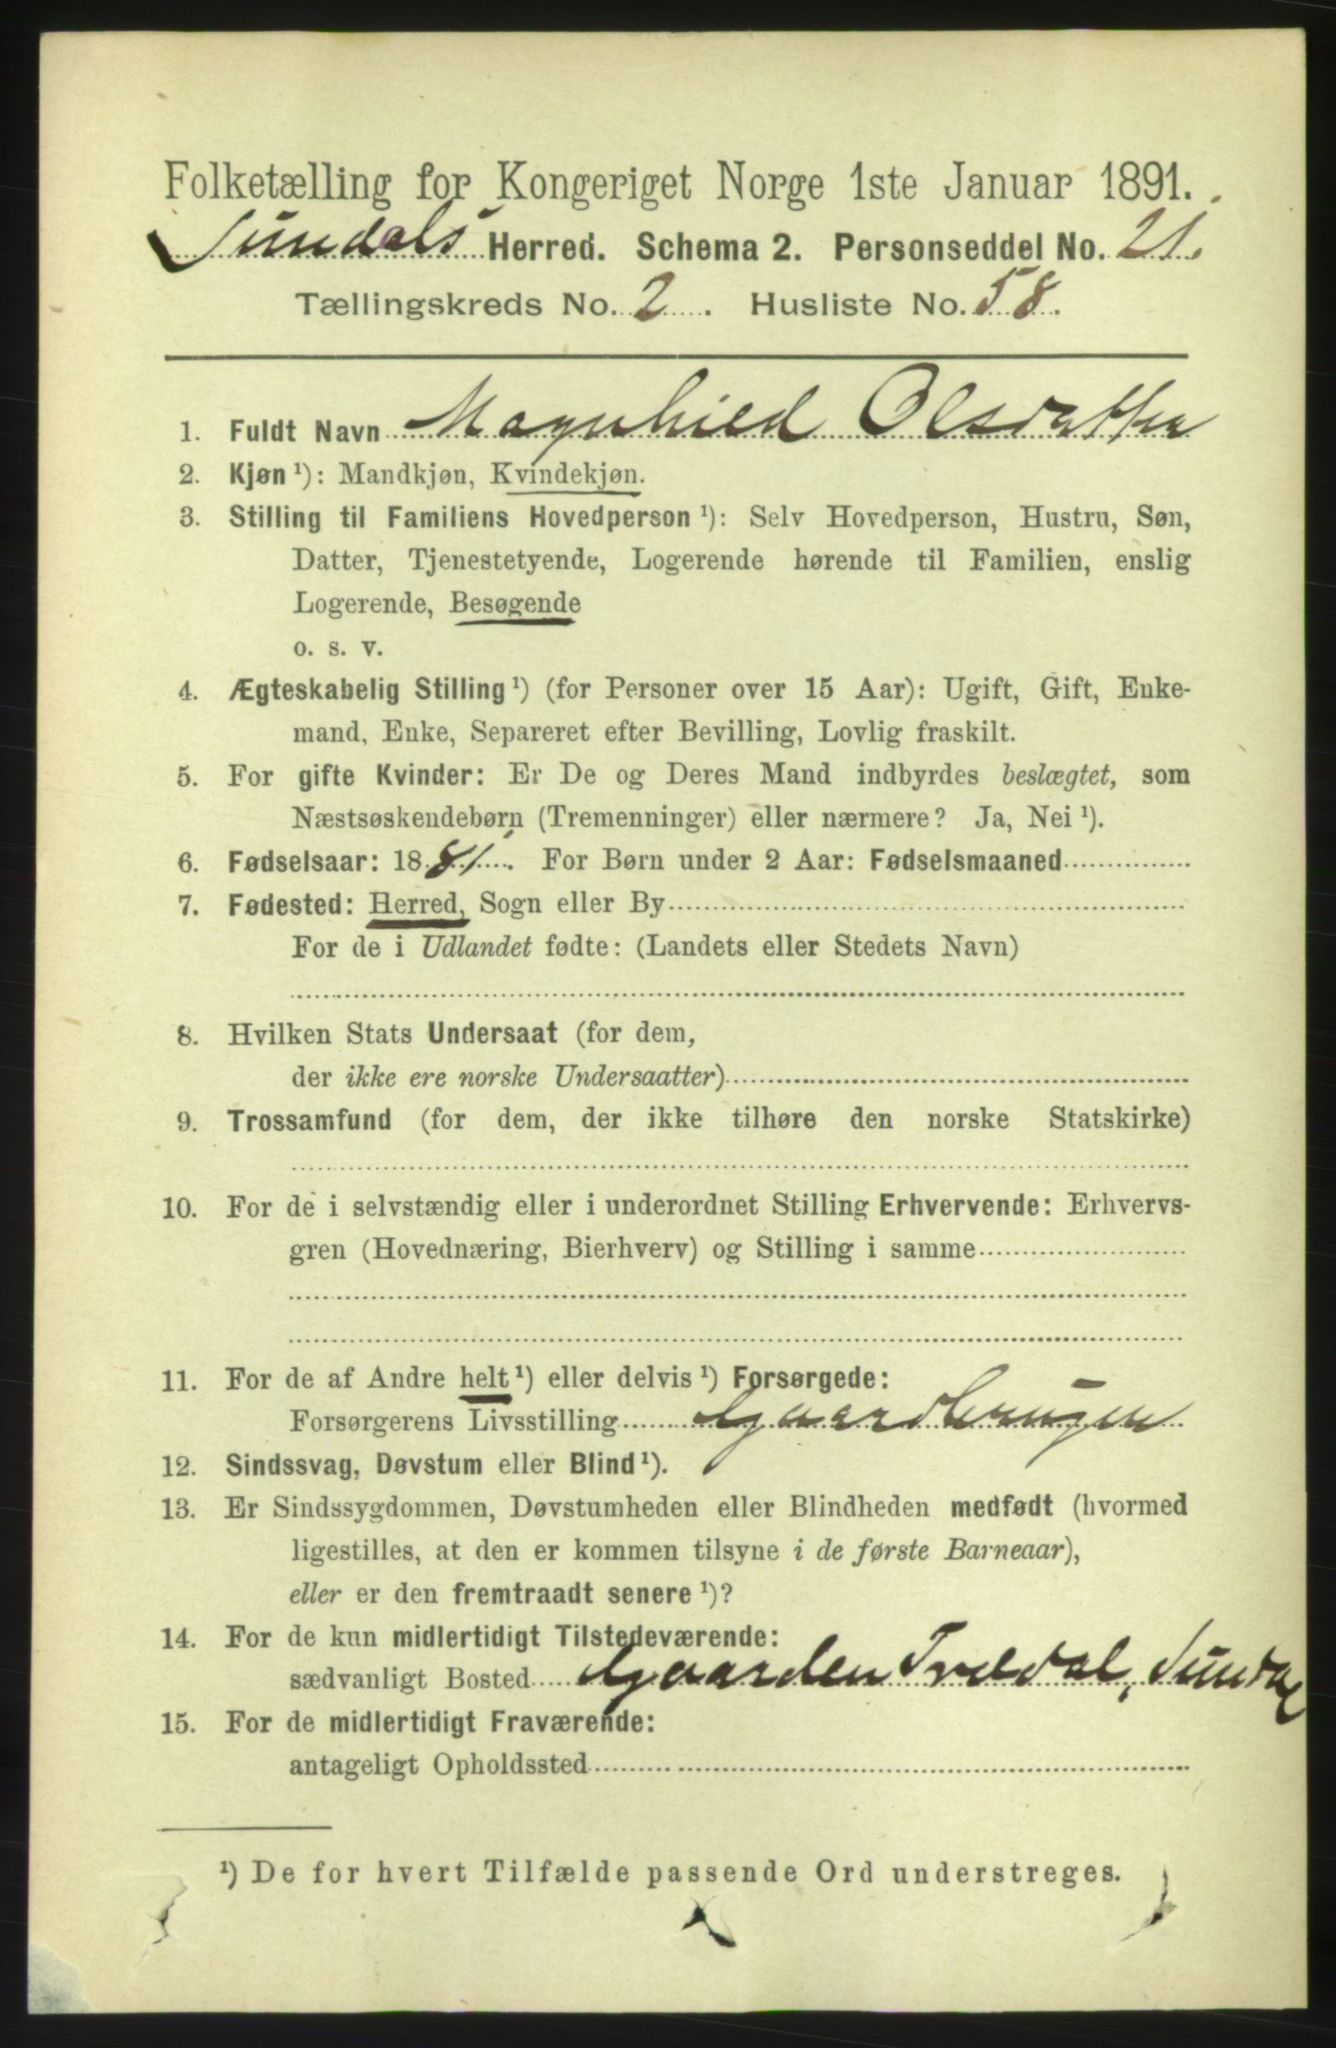 Folketælling for Kongeriget Norge 1ste Januar 1891.
Sundals Herred. Schema 2. Personseddel No. 21.
Tællingskreds No. 2. Husliste No. 58.
1. Fuldt Navn Magnhild Olsdatter
2. Kjøn ¹): Mandkjøn, Kvindekjøn.
3. Stilling til Familiens Hovedperson ¹): Selv Hovedperson, Hustru, Søn,
Datter, Tjenestetyende, Logerende hørende til Familien, enslig
Logerende, Besøgende
o. s. v.
4. Ægteskabelig Stilling ¹) (for Personer over 15 Aar): Ugift, Gift, Enke-
mand, Enke, Separeret efter Bevilling, Lovlig fraskilt.
5. For gifte Kvinder: Er De og Deres Mand indbyrdes beslægtet, som
Næstsøskendebørn (Tremenninger) eller nærmere? Ja, Nei ¹).
6. Fødselsaar: 1881. For Børn under 2 Aar: Fødselsmaaned
7. Fødested: Herred, Sogn eller By
For de i Udlandet fødte: (Landets eller Stedets Navn)
8. Hvilken Stats Undersaat (for dem,
der ikke ere norske Undersaatter)
9. Trossamfund (for dem, der ikke tilhøre den norske Statskirke)
10. For de i selvstændig eller i underordnet Stilling Erhvervende: Erhvervs-
gren (Hovednæring, Bierhverv) og Stilling i samme
11. For de af Andre helt ¹) eller delvis ¹) Forsørgede:
Forsørgerens Livsstilling Gaardbrugen
12. Sindssvag, Døvstum eller Blind ¹).
13. Er Sindssygdommen, Døvstumheden eller Blindheden medfødt (hvormed
ligestilles, at den er kommen tilsyne i de første Barneaar),
eller er den fremtraadt senere ¹)?
14. For de kun midlertidigt Tilstedeværende:
sædvanligt Bosted Gaarden Tredal, Sundal
15. For de midlertidigt Fraværende:
antageligt Opholdssted
¹) De for hvert Tilfælde passende Ord understreges.